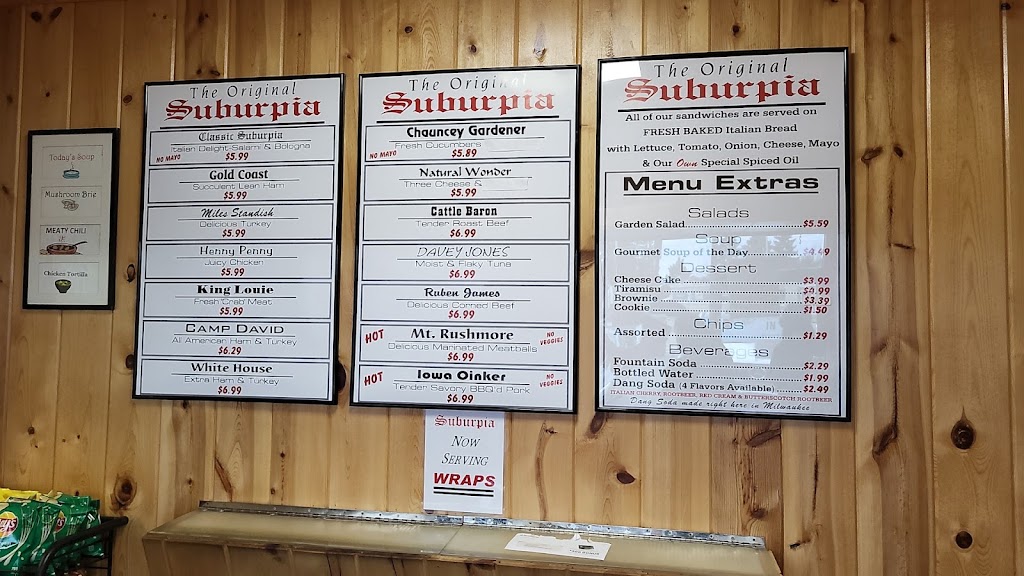 Today's Soup
Mushroom Brie
MEATY CHILI
Chicken Tortilla
The Original
Suburpia
Classic Suburpia
Italian Delight-Salami & Bologna
NO MAYO
$5.99
Gold Coast
Succulent Lean Ham
$5.99
Miles Standish
Delicious Turkey
$5.99
Henny Penny
Juicy Chicken
$5.99
King Louie
Fresh 'Crab' Meat
$5.99
CAMP DAVID
All American Ham & Turkey
$6.29
White House
Extra Ham & Turkey
$6.99
The Original
Suburpia
Chauncey Gardener
Fresh Cucumbers
NO MAYO
$5.89
Natural Wonder
Three Cheese &
$5.99
Cattle Baron
Tender Roast Beef
$6.99
DAVEY JONES
Moist & Flaky Tuna
$6.99
Ruben James
Delicious Corned Beef
$6.99
HOT
Mt. Rushmore
NO VEGGIES
Delicious Marinated Meatballs
$6.99
HOT
Iowa Oinker
NO VEGGIES
Tender Savory BBQ'd Pork
$6.99
The Original
Suburpia
All of our sandwiches are served on
FRESH BAKED Italian Bread
with Lettuce, Tomato, Onion, Cheese, Mayo
& Our Own Special Spiced Oil
Menu Extras
Salads
Garden Salad $5.59
Soup
Gourmet Soup of the Day $4.49
Dessert
Cheese Cake $3.99
Tiramisu
Brownie $3.39
Cookie $1.50
Chips
Assorted $1.29
Beverages
Fountain Soda $2.29
Bottled Water $1.99
Dang Soda (4 Flavors Available) $2.49
ITALIAN CHERRY, ROOTBEER, RED CREAM & BUTTERSCOTCH ROOTBEER
Dang Soda made right here in Milwaukee
Suburpia
NOW
SERVING
WRAPS